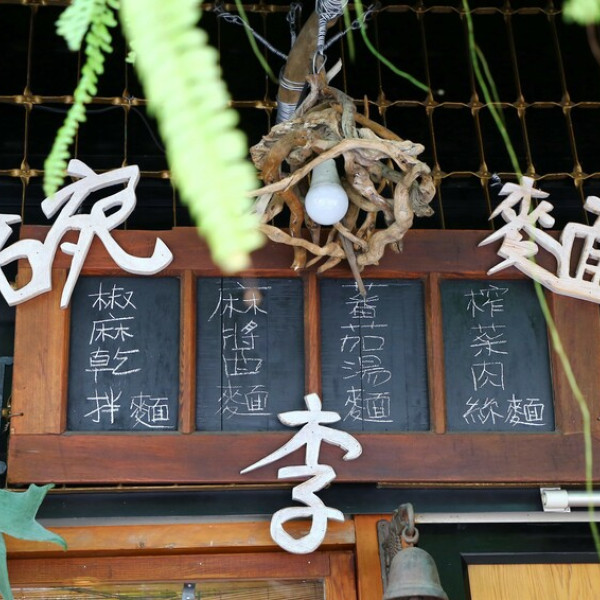 麵
椒麻乾拌麵
麻醬麵
蕃茄湯麵
榨菜肉絲麵
李